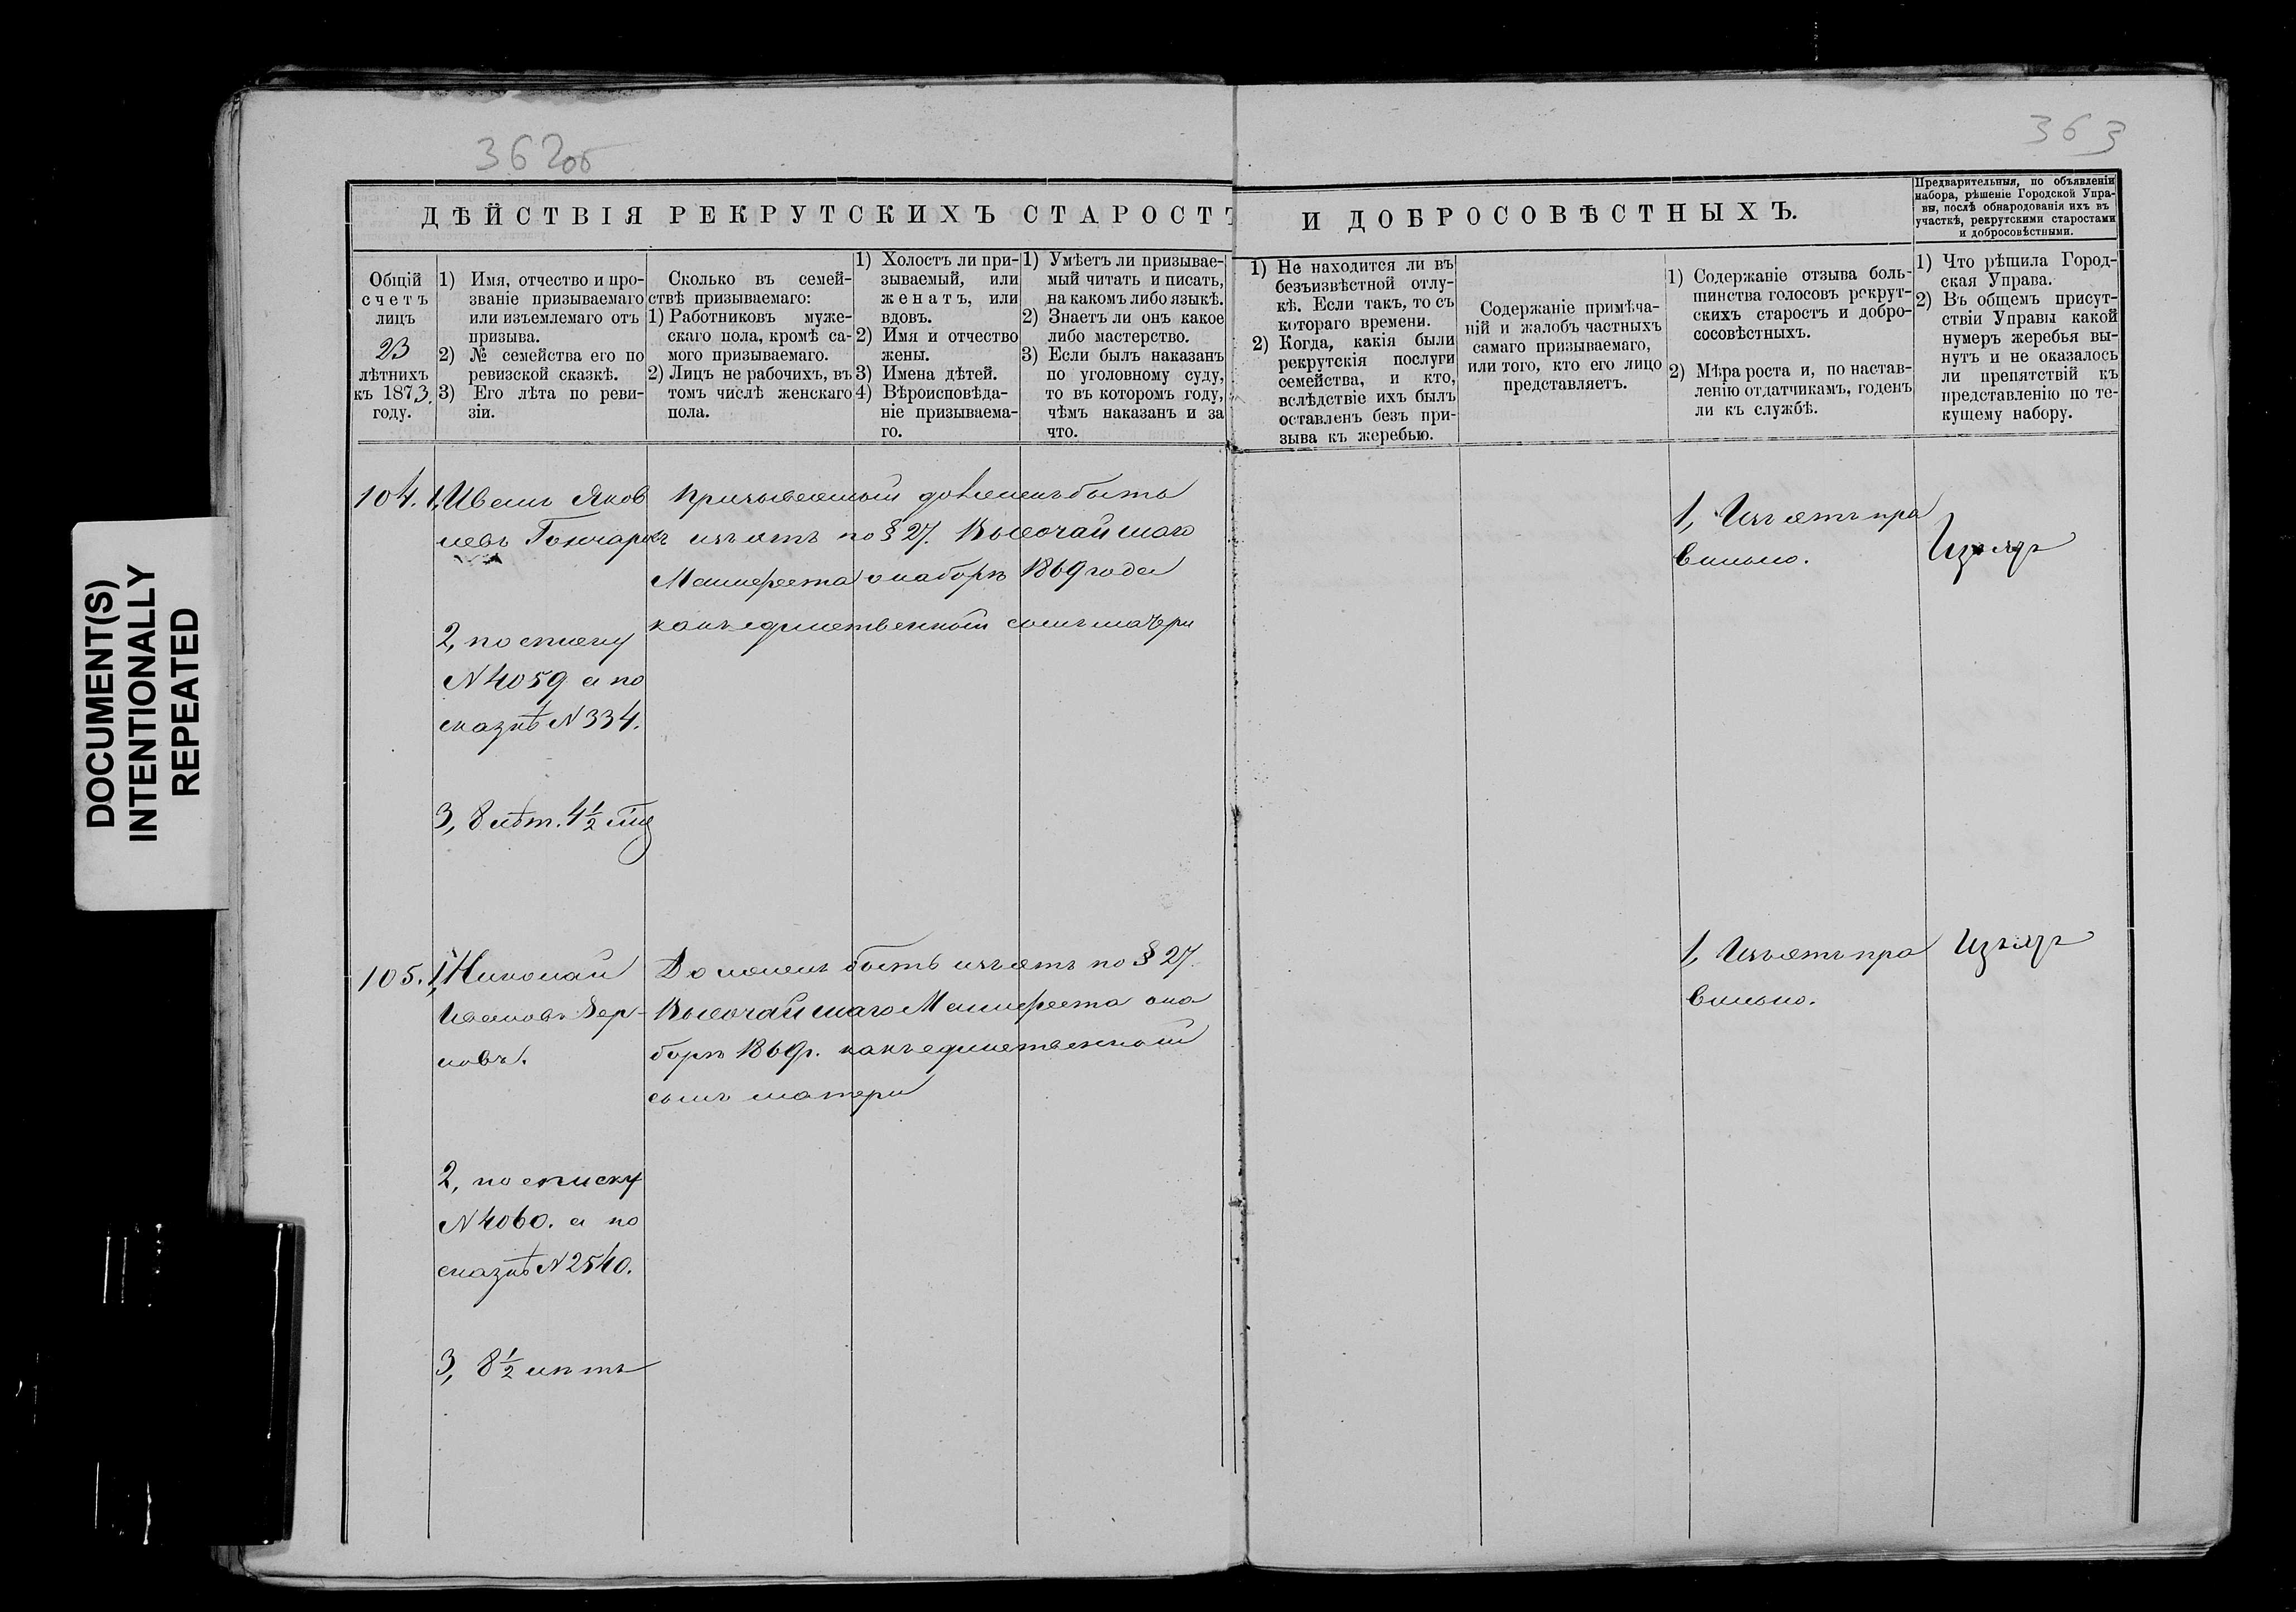 362об
363
ДѢЙСТВІЯ РЕКРУТСКИХЪ СТАРОСТЪ И ДОБРОСОВѢСТНЫХЪ.
Предварительныя, по объявленіи
набора, рѣшеніе Городской Упра-
вы, послѣ обнародованія ихъ въ
участкѣ, рекрутскими старостами
и добросовѣстными.
Общій
счетъ
лицъ
23
лѣтнихъ
къ 1873.
году.
1) Имя, отчество и про-
званіе призываемаго
или изъемлемаго отъ
призыва.
2) № семейства его по
ревизской сказкѣ.
3) Его лѣта по реви-
зіи.
Сколько въ семей-
ствѣ призываемаго:
1) Работниковъ муже-
скаго пола, кромѣ са-
мого призываемаго.
2) Лицъ не рабочихъ, въ
томъ числѣ женскаго
пола.
1) Холостъ ли при-
зываемый, или
женатъ, или
вдовъ.
2) Имя и отчество
жены.
3) Имена дѣтей.
4) Вѣроисповѣда-
ніе призываема-
го.
1) Умѣетъ ли призывае-
мый читать и писать,
на какомъ либо языкѣ.
2) Знаетъ ли онъ какое
либо мастерство.
3) Если былъ наказанъ
по уголовному суду,
то въ которомъ году,
чѣмъ наказанъ и за
что.
1) Не находится ли въ
безъизвѣстной отлу-
кѣ. Если такъ, то съ
котораго времени.
2) Когда, какія были
рекрутскія послуги
семейства, и кто,
вслѣдствіе ихъ былъ
оставленъ безъ при-
зыва къ жеребью.
Содержаніе примѣча-
ній и жалобъ частныхъ
самаго призываемаго,
или того, кто его лицо
представляетъ.
1) Содержаніе отзыва боль-
шинства голосовъ рекрут-
скихъ старостъ и добро-
сосовѣстныхъ.
2) Мѣра роста и, по настав-
ленію отдатчикамъ, годенъ
ли къ службѣ.
1) Что рѣшила Город-
ская Управа.
2) Въ общемъ присут-
ствіи Управы какой
нумеръ жеребья вы-
нутъ и не оказалось
ли препятствій къ
представленію по те-
кущему набору.
104. 1, Иванъ Яков
левъ Гончаровъ
2, по списку
N 4059 а по
сказкѣ N 334.
3, 8 лѣт. 4½ мѣс
Призываемый долженъ быть
изъятъ по § 27. Высочайшаго
Манифеста о наборѣ 1869 года
какъ единственный сынъ матери
1, Изъятъ пра
вильно.
Изъять
105. 1, Николай
Ивановъ Зер-
новъ.
2, по списку
N 4060. а по
сказкѣ N 2540.
3, 8½ лѣтъ
Долженъ быть изъятъ по § 27.
Высочайшаго Манифеста о на
борѣ 1869 г. какъ единственный
сынъ матери
1, Изъятъ пра
вильно.
Изъять
DOCUMENT(S)
INTENTIONALLY
REPEATED